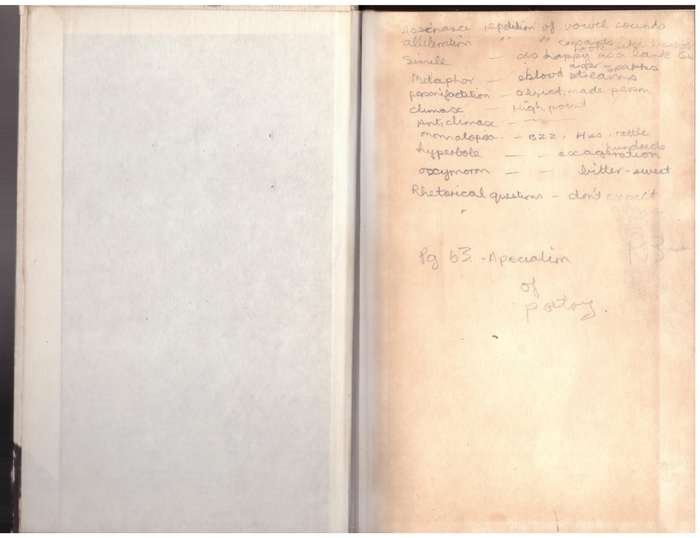 assonance repitition of vowel sounds
alliteration " " " consants
Simile - as happy as a
Metaphor - blood streams
personifactition - object, made person
climax - High point
Anti, climax - - " -
onomatopoea. - BZZ, Hiss, rattle
hyperbole - - exageration
hundreds
oxymorm - - bitter-sweet
Rhetorical questions - don't expect
Pg 63. - Apeciation
of
poetry.